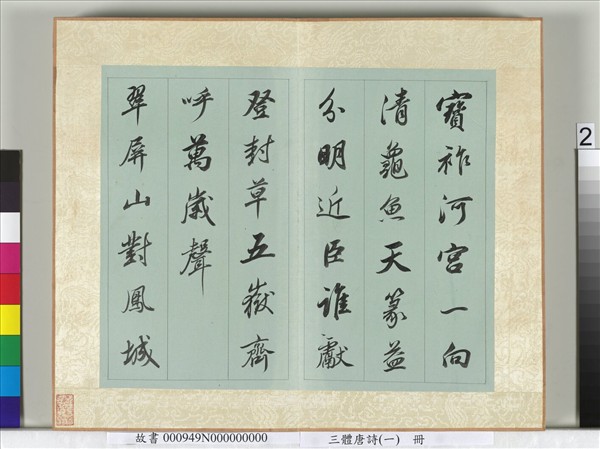 寶祚河宮一向
清龜魚天篆益
分明近臣誰獻
登封草五嶽齊
呼萬歲聲
翠屏山對鳳城
2
故書 000949N000000000
三體唐詩(一) 冊